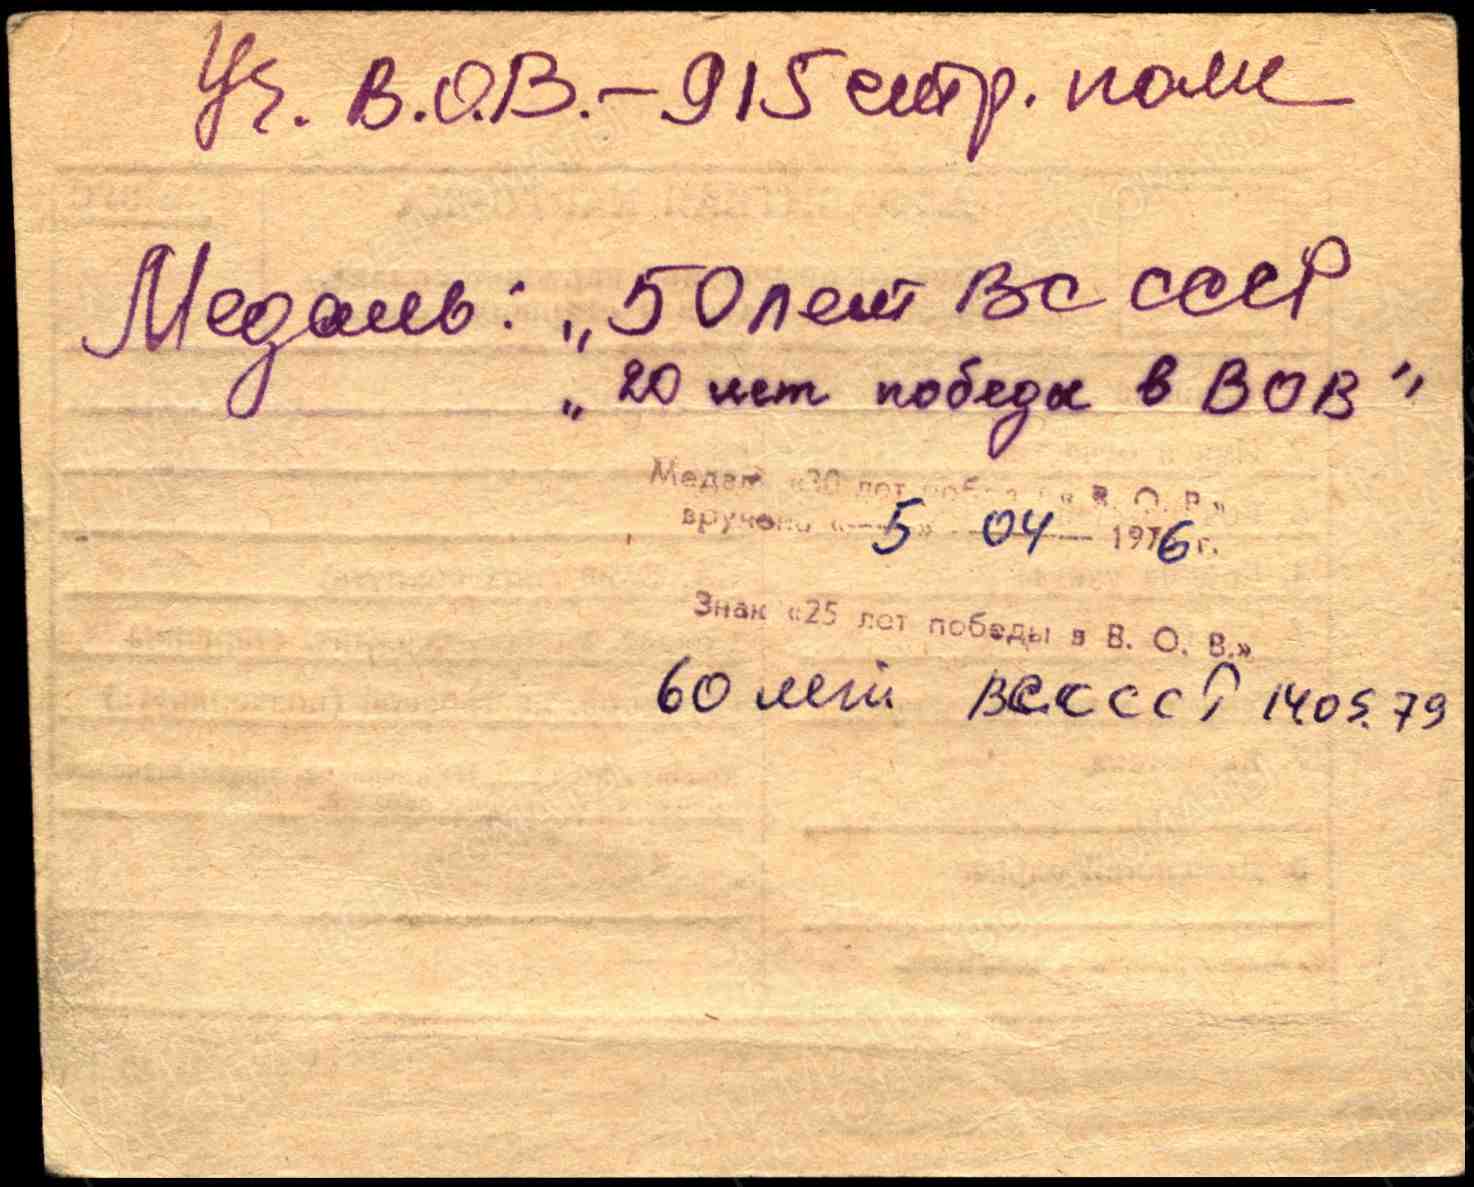 Уч. В.О.В. – 915 стр. полк
Медаль: „50 лет ВС СССР
„20 лет победы в ВОВ"
Медаль «30 лет победы в В. О. В.»
вручена «5» 04 1976 г.
Знак «25 лет победы в В. О. В.»
60 лет ВС СССР 14.05.79